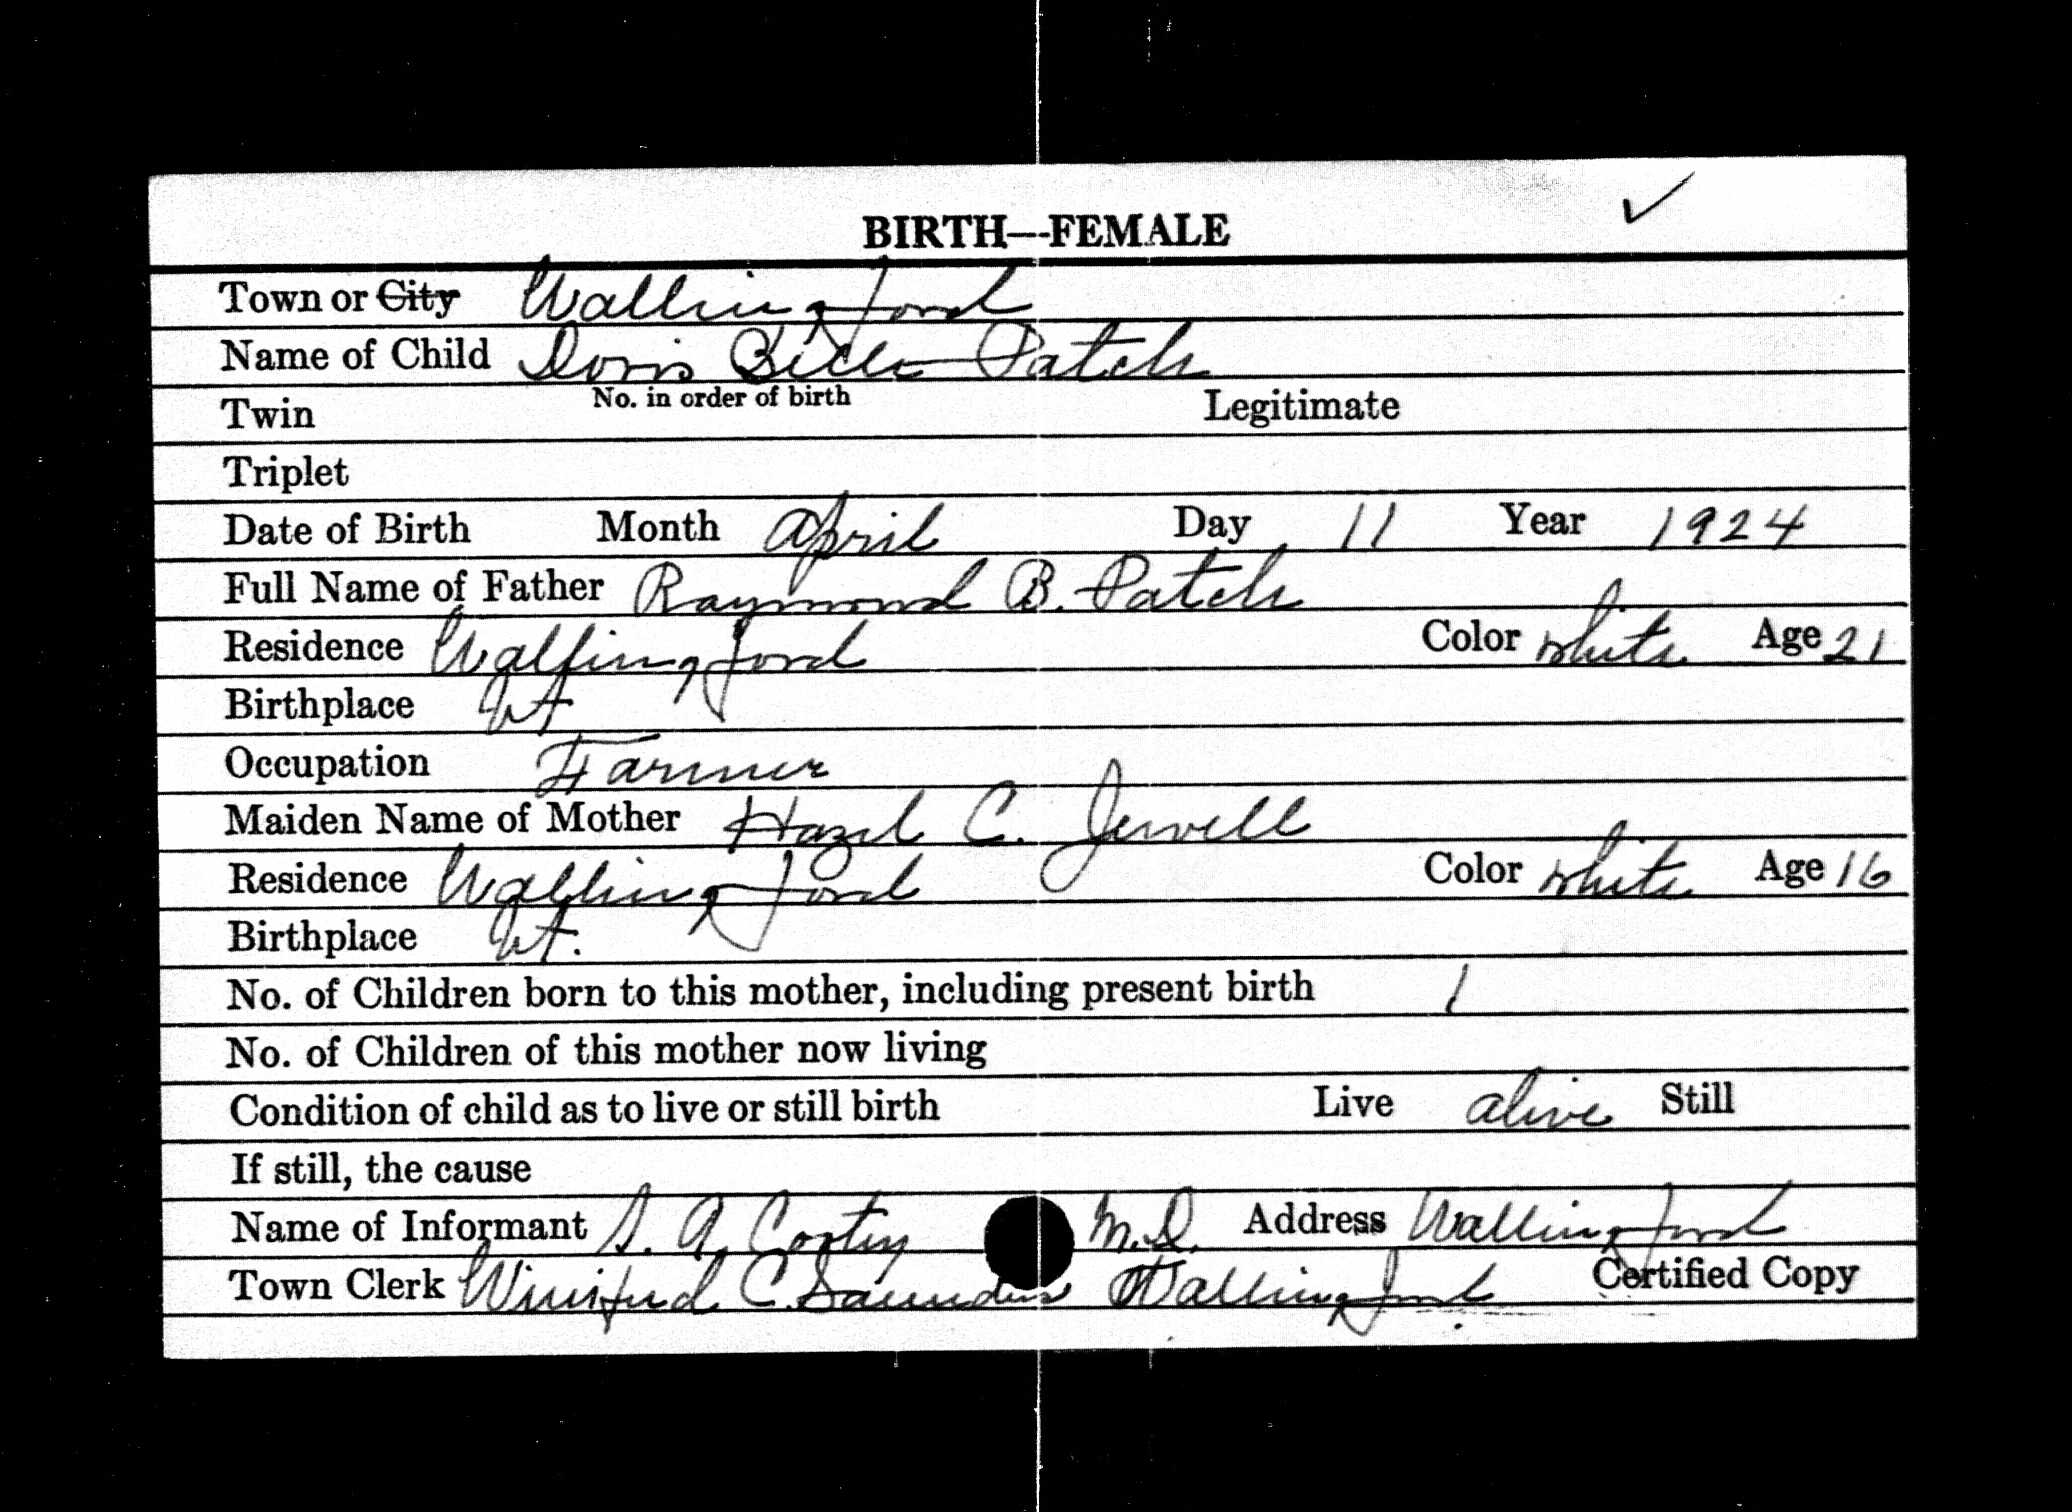 BIRTH—FEMALE
Town or City Wallingford
Name of Child Doris Patch
Twin No. in order of birth Legitimate
Triplet
Date of Birth Month April Day 11 Year 1924
Full Name of Father Raymond B. Patch
Residence Wallingford Color white Age 21
Birthplace Vt
Occupation Farmer
Maiden Name of Mother Hazel C. Jewell
Residence Wallingford Color white Age 16
Birthplace Vt.
No. of Children born to this mother, including present birth 1
No. of Children of this mother now living
Condition of child as to live or still birth Live alive Still
If still, the cause
Name of Informant S. A. M.D. Address Wallingford
Town Clerk Winifred C. Saunders Wallingford Certified Copy